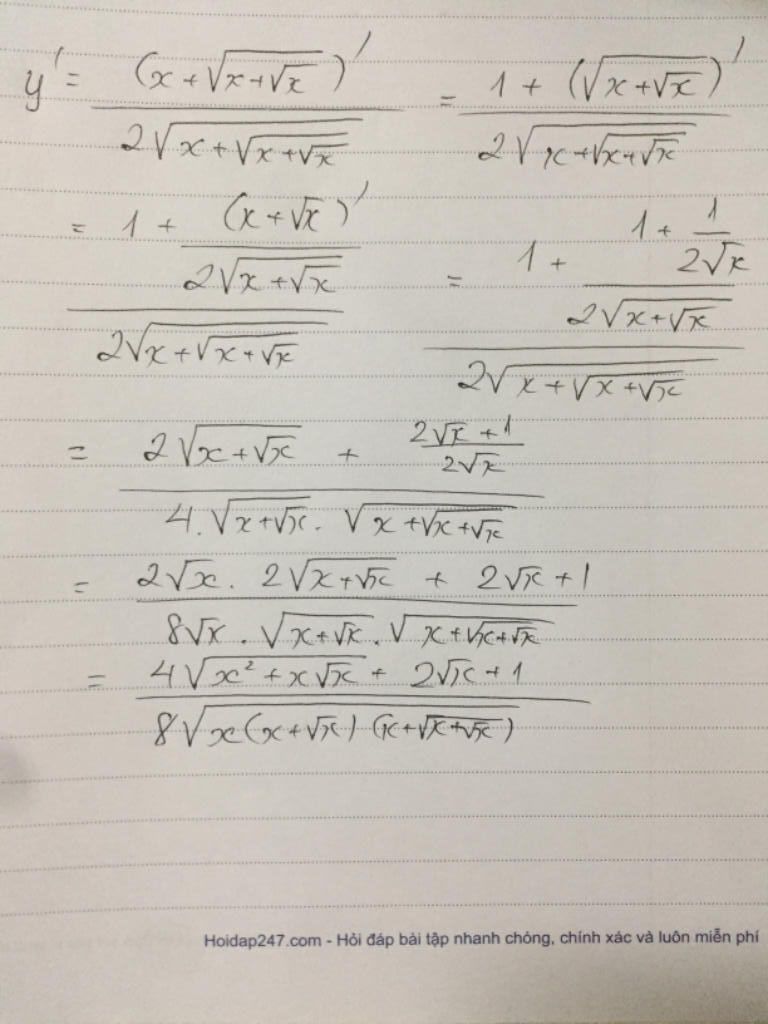 y' = (x+√(x+√x))' / 2√(x+√(x+√x)) = 1 + (√(x+√x))' / 2√(x+√(x+√x))
= (1 + (x+√x)' / 2√(x+√x)) / 2√(x+√(x+√x)) = (1 + (1 + 1/2√x) / 2√(x+√x)) / 2√(x+√(x+√x))
= (2√(x+√x) + (2√x+1)/2√x) / 4.√(x+√x) . √(x+√(x+√x))
= (2√x . 2√(x+√x) + 2√x + 1) / 8√x . √(x+√x) . √(x+√(x+√x))
= (4√(x²+x√x) + 2√x + 1) / 8√(x(x+√x)(x+√(x+√x)))
Hoidap247.com - Hỏi đáp bài tập nhanh chóng, chính xác và luôn miễn phí